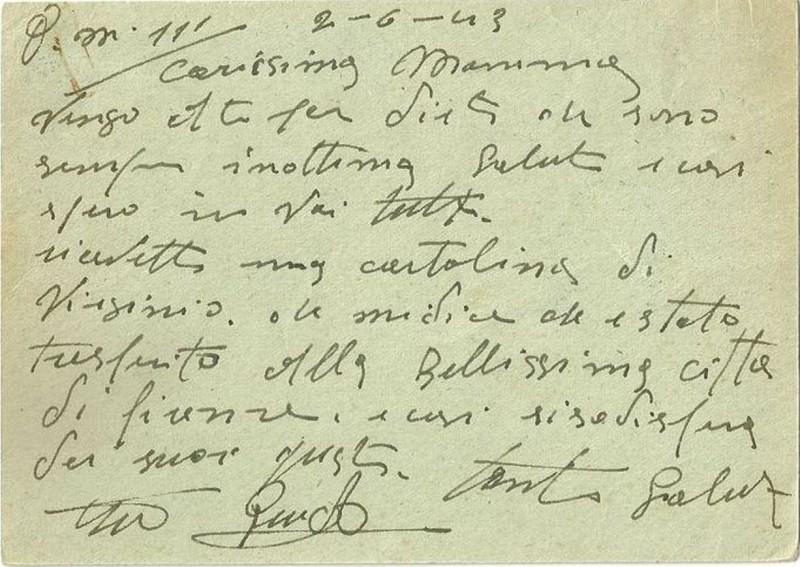 P. M. 111 2-6-43
Carissima Mamma
Vengo a te per dirti che sono
sempre in ottima salute e così
spero in Voi tutti.
ricevetti una cartolina di
Virginio. che mi dice che e stato
trasferito alla Bellissima città
di firenze. e così si sodisfera
dei suoi gusti. tanti Saluti
tuo